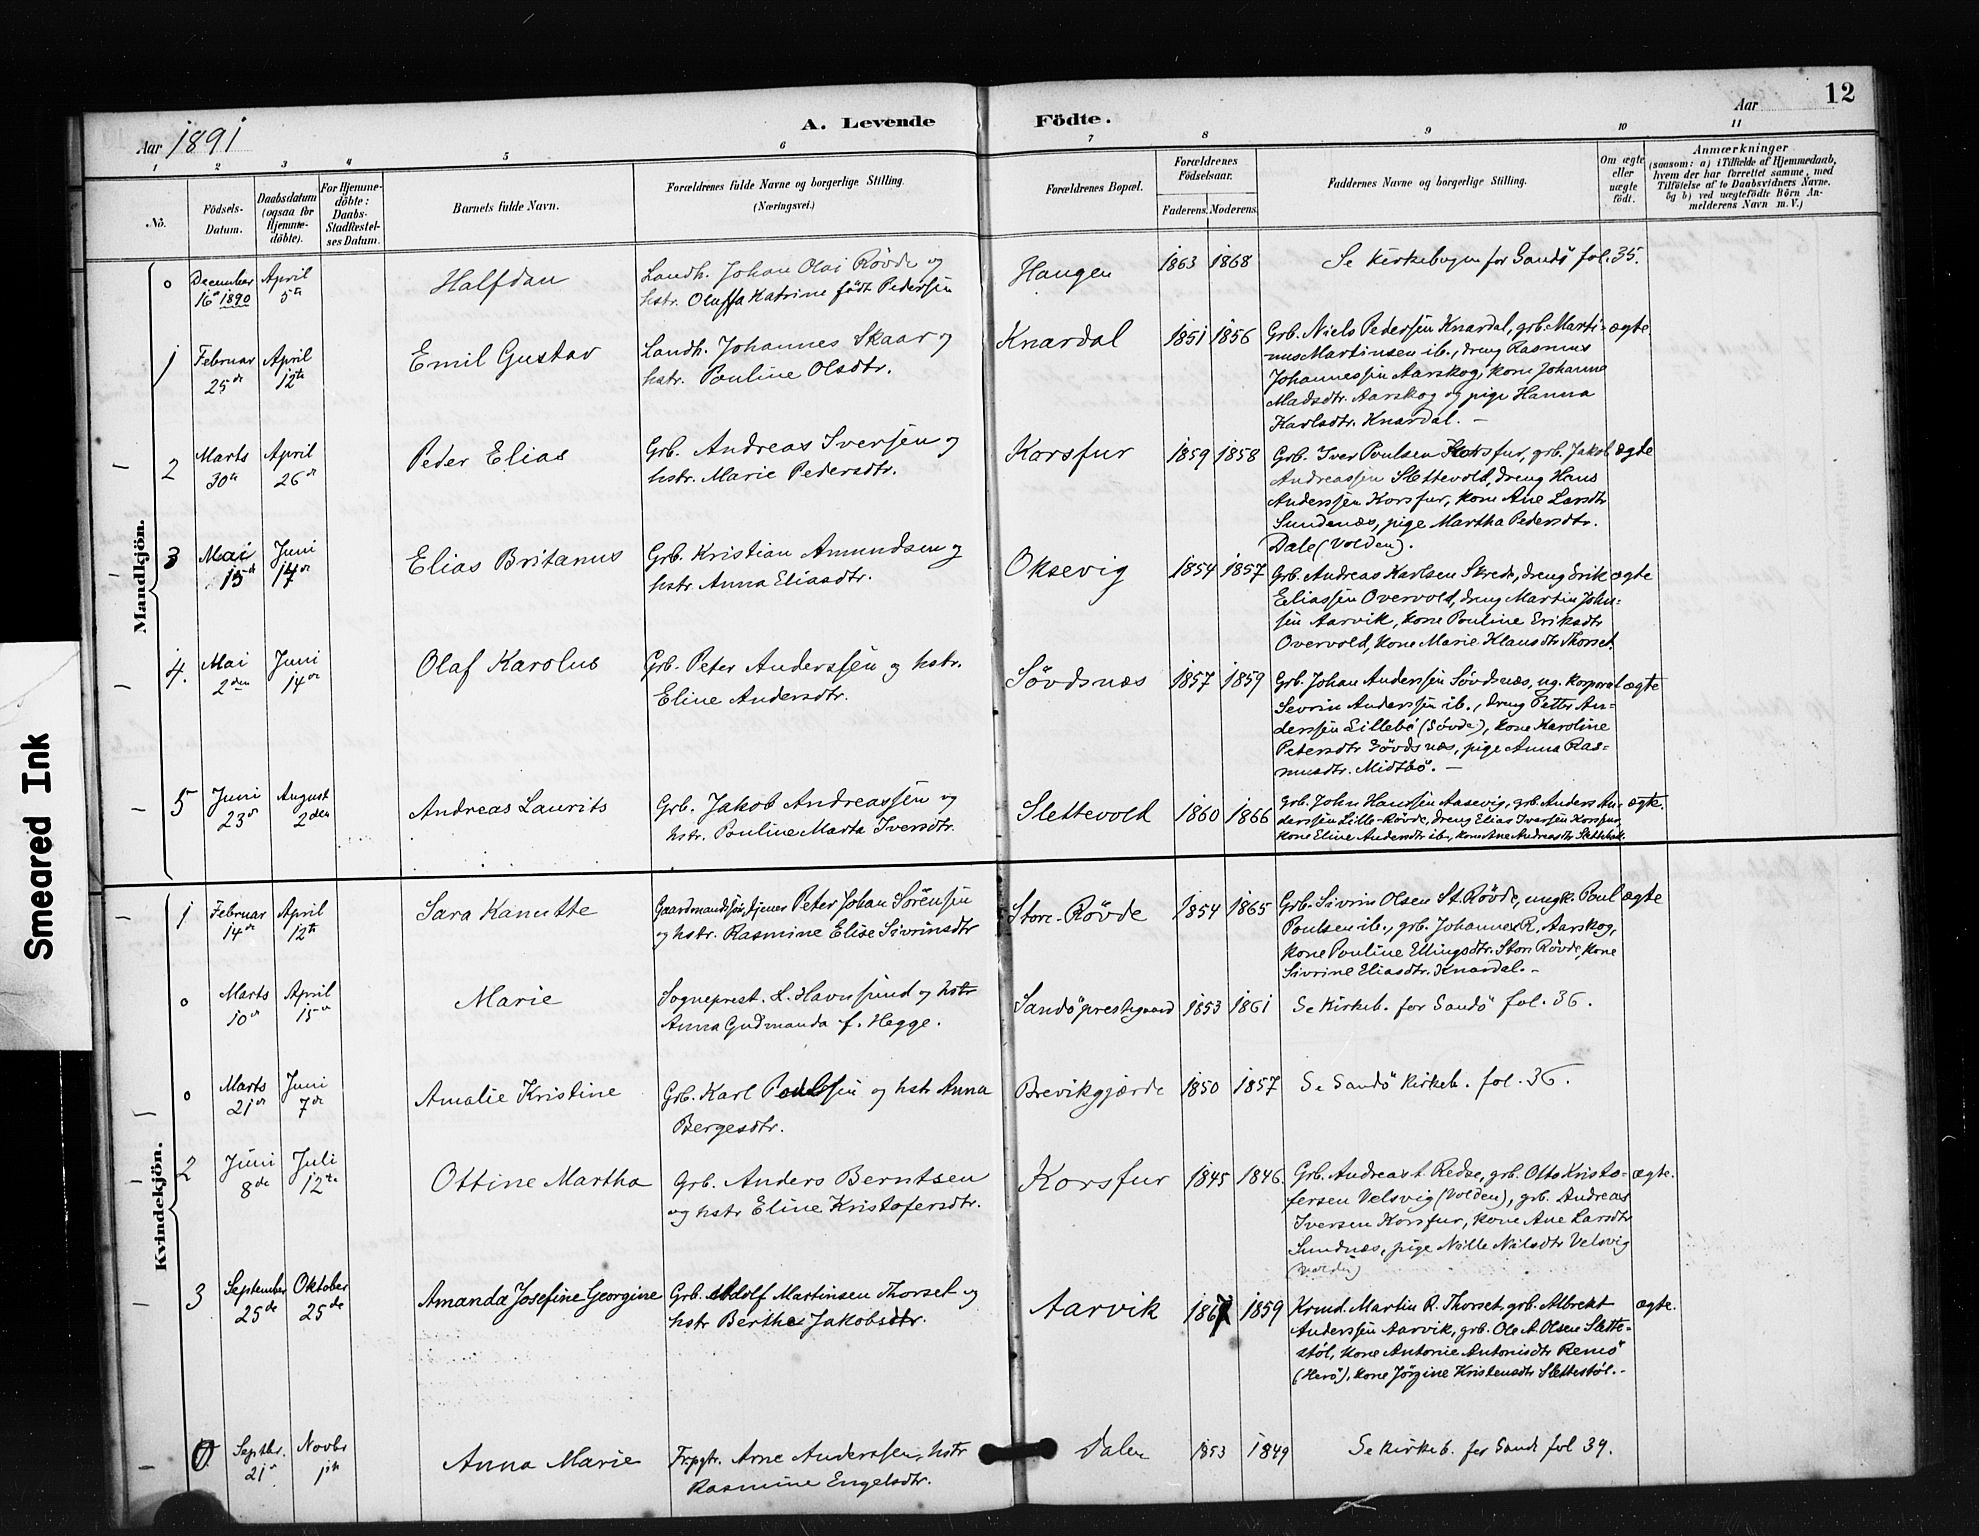 12
Aar 1891
A. Levende Födte.
Aar
1 2 3 4 5 6 7 8 9 10 11
No.
Födsels-Datum.
Daabsdatum (ogsaa for Hjemme-döbte).
For Hjemme-döbte: Daabs-Stadfæstel-ses Datum.
Barnets fulde Navn.
Forældrenes fulde Navne og borgerlige Stilling. (Næringsvei.)
Forældrenes Bopæl.
Forældrenes Födselsaar.
Faderens. Moderens.
Faddernes Navne og borgerlige Stilling.
Om ægte eller uægte födt.
Anmærkninger
(saasom: a) i Tilfælde af Hjemmedaab, hvem der har forrettet samme, med Tilföielse af to Daabsvidners Navne, og b) ved uægtefödte Börn An-melderens Navn m. V.)
Mandkjön.
o December 16de 1890 April 5te Halfdan Landh. Johan Olai Røvde og
hstr. Oluffa Katrine født Pedersen Haugen 1863 1868 Se Kirkebogen for Sandö fol. 35.
1 Februar 25de April 12te Emil Gustav Landh. Johannes Skaar og
hstr. Pouline Olsdtr. Knardal 1851 1856 Grb. Niels Pedersen Knardal, grb. Marti-
nus Martinsen ib., dreng Rasmus
Johannessen Aarskog, kone Johanne
Madsdtr. Aarskog og pige Hanna
Karlsdtr. Knardal. — ægte
2 Marts 30te April 26de Peder Elias Grb. Andreas Iversen og
hstr. Marie Pedersdtr. Korsfur 1859 1858 Grb. Iver Poulsen Korsfur, grb. Jakob
Andreassen Slettevold, dreng Hans
Anderssen Korsfur, kone Ane Larsdtr
Sundnæs, pige Martha Pedersdtr.
Dale (Volden). ægte
3 Mai 15de Juni 14de Elias Britanus Grb. Kristian Amundsen og
hstr Anna Eliasdtr. Oksevig 1854 1857 Grb. Andreas Karlsen Skrede, dreng Erik
Eliassen Overvold, dreng Martin John-
sen Aarvik, kone Pouline Eriksdtr
Overvold, kone Marie Klausdtr Thorset. ægte
4. Mai 2den Juni 14de Olaf Karolus Grb. Peter Anderssen og hstr.
Eline Andersdtr. Søvdsnæs 1857 1859 Grb. Johan Anderssen Søvdsnæs, ug. korporal
Sevrin Anderssen ib., dreng Petter An-
derssen Lillebö (Søvde), kone Karoline
Petersdtr Søvdsnæs, pige Anna Ras-
musdtr. Midtbö. — ægte
5 Juni 23de August 2den Andreas Laurits Grb. Jakob Andreassen og
hstr. Pouline Marta Iversdtr. Slettevold 1860 1866 Grb. John Hanssen Aasevig, grb. Anders An-
derssen Lille-Røvde, dreng Elias Iversen Korsfur,
kone Eline Andersdtr ib., kone Ane Andreasdtr Slettevold. ægte.
Kvindekjön.
1 Februar 14de April 12te Sara Kanutte Gaardmandssøn, tjener Peter Johan Sörensen
og hstr. Rasmine Elise Sivrinsdtr Store-Røvde 1854 1865 Grb. Sivrin Olsen St. Røvde, ungk. Poul
Poulsen ib., grb. Johannes R. Aarskog,
kone Pouline Ellingsdtr. Store Røvde, kone
Sivrine Eliasdtr. Knardal. — ægte
o Marts 10de April 15de Marie Sogneprest. L. Havnsund og hstr
Anna Gudmanda f. Hegge. Sandö prestegaard 1853 1861 Se Kirkeb. for Sandö fol. 36.
o Marts 21de Juni 7de Amalie Kristine Grb. Karl Poulssen og hstr Anna
Bergesdtr. Brevikgjærde 1850 1857 Se Sandö Kirkeb. fol. 36.
2 Juni 8de Juli 12te Ottine Martha Grb. Anders Berntsen
og hstr Eline Kristofersdtr. Korsfur 1845 1846. Grb. Andreas t. Redse, grb. Otto Kristo-
fersen Velsvig (Volden), grb. Andreas
Iversen Korsfur, kone Ane Larsdtr
Sundnæs, pige Nille Nilsdtr Velsvig
(Volden) ægte.
3 September 25de Oktober 25de Amanda Josefine Georgine Grb. Adolf Martinsen Thorset og
hstr Berthe Jakobsdtr. Aarvik 1867 1859 Krmd. Martin R. Thorset, grb. Albrekt
Anderssen Aarvik, grb. Ole A. Olsen Slette-
støl, kone Antonie Antonisdtr Remö
(Herö), kone Jørgine Kristensdtr Slettestøl. — ægte.
0 Septbr. 21de Novbr 1ste Anna Marie Frpgr. Arne Anderssen, hstr
Rasmine Engelsdtr. Dalen 1853 1849 Se Kirkeb. for Sande fol 39.
Smeared Ink